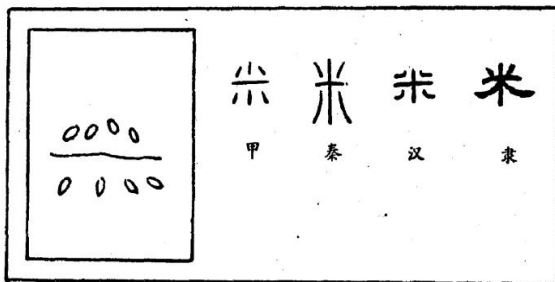 米 米 米 米
甲 秦 汉 隶